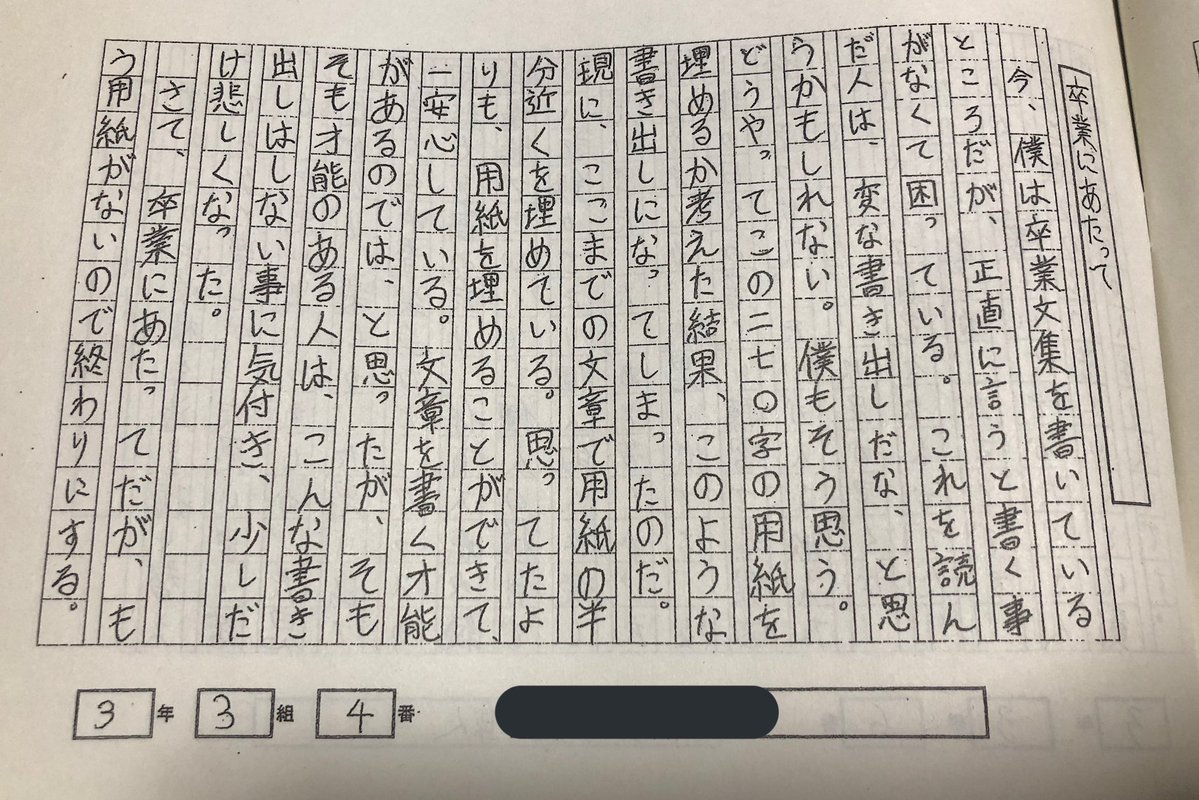 卒業にあたって
今、僕は卒業文集を書いている
ところだが、正直に言うと書く事
がなくて困っている。これを読ん
だ人は、変な書き出しだな、と思
うかもしれない。僕もそう思う。
どうやってこの二七〇字の用紙を
埋めるか考えた結果、このような
書き出しになってしまったのだ。
現に、ここまでの文章で用紙の半
分近くを埋めている。思ってたよ
りも、用紙を埋めることができて、
一安心している。文章を書く才能
があるのでは、と思ったが、そも
そも才能のある人は、こんな書き
出しはしない事に気付き、少しだ
け悲しくなった。
さて、卒業にあたってだが、も
う用紙がないので終わりにする。
3年 3組 4番